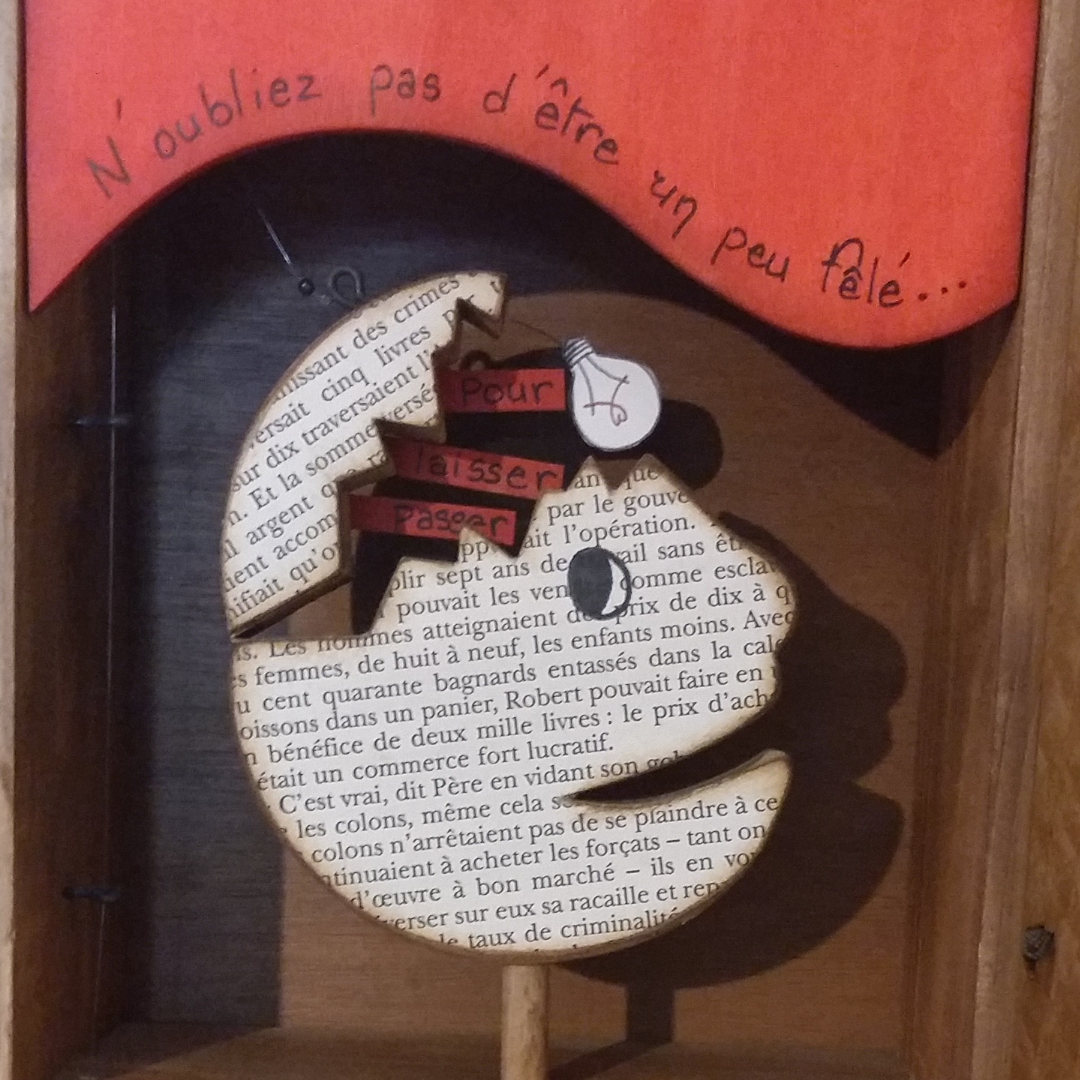 N'oubliez pas d'être un peu fêlé...
Pour
laisser
passer
nissant des crimes
versait cinq livres
sur dix traversaient l'
n. Et la somme versé
argent
ient accom
nifiait qu'o
an que
par le gouve
ait l'opération.
plir sept ans de ail sans êt
pouvait les ven comme escla
s. Les hommes atteignaient de prix de dix à q
s femmes, de huit à neuf, les enfants moins. Avec
u cent quarante bagnards entassés dans la cale
oissons dans un panier, Robert pouvait faire en
n bénéfice de deux mille livres : le prix d'ach
était un commerce fort lucratif.
C'est vrai, dit Père en vidant son gob
les colons, même cela s
colons n'arrêtaient pas de se plaindre à ce
ntinuaient à acheter les forçats – tant on
d'œuvre à bon marché – ils en vou
verser sur eux sa racaille et rep
le taux de criminalité